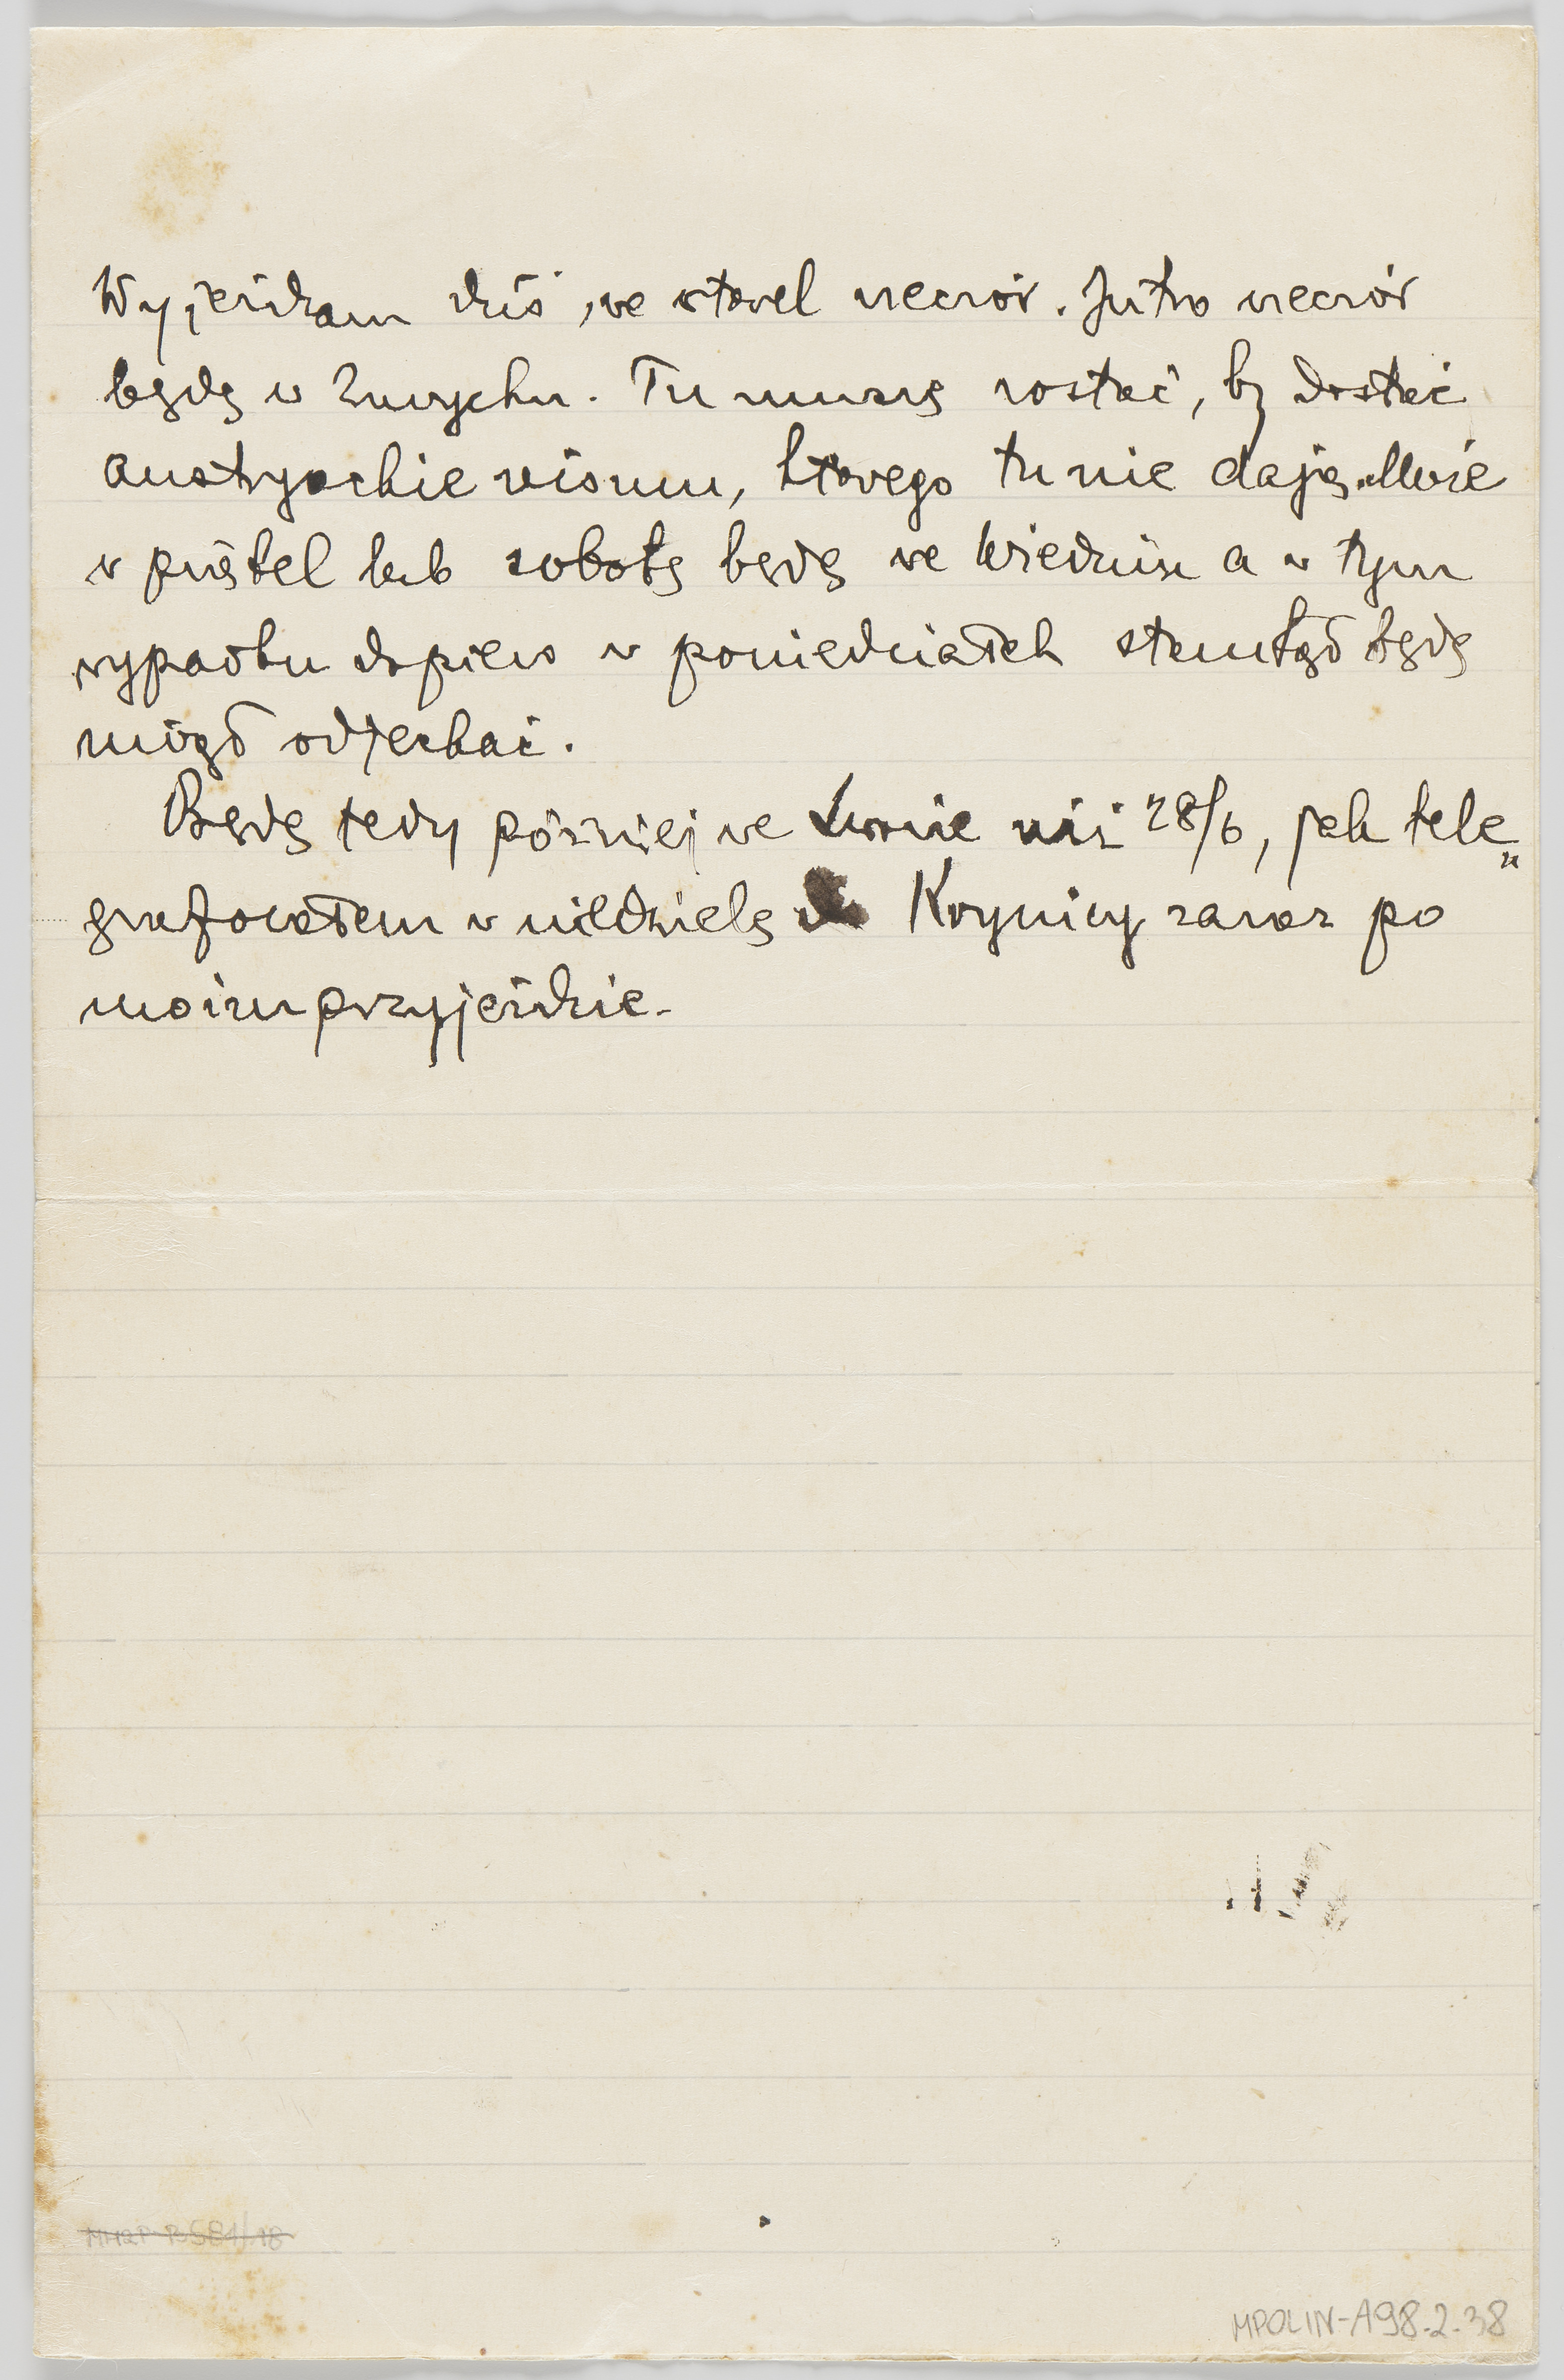 Wyjeżdżam dziś, we wtorek wieczór. Jutro wieczór
będę w Zurychu. Tu muszę zostać, by dostać
austryackie visum, którego tu nie dają. Może
w piątek lub sobotę będę we Wiedniu a w tym
wypadku dopiero w poniedziałek stamtąd będę
mógł odjechać.
Będę tedy później we Lwowie niż 28/6, jak tele„
grafowałem w niedzielę z Krynicy zaraz po
moim przyjeździe.
MPOLIN-A98.2.38